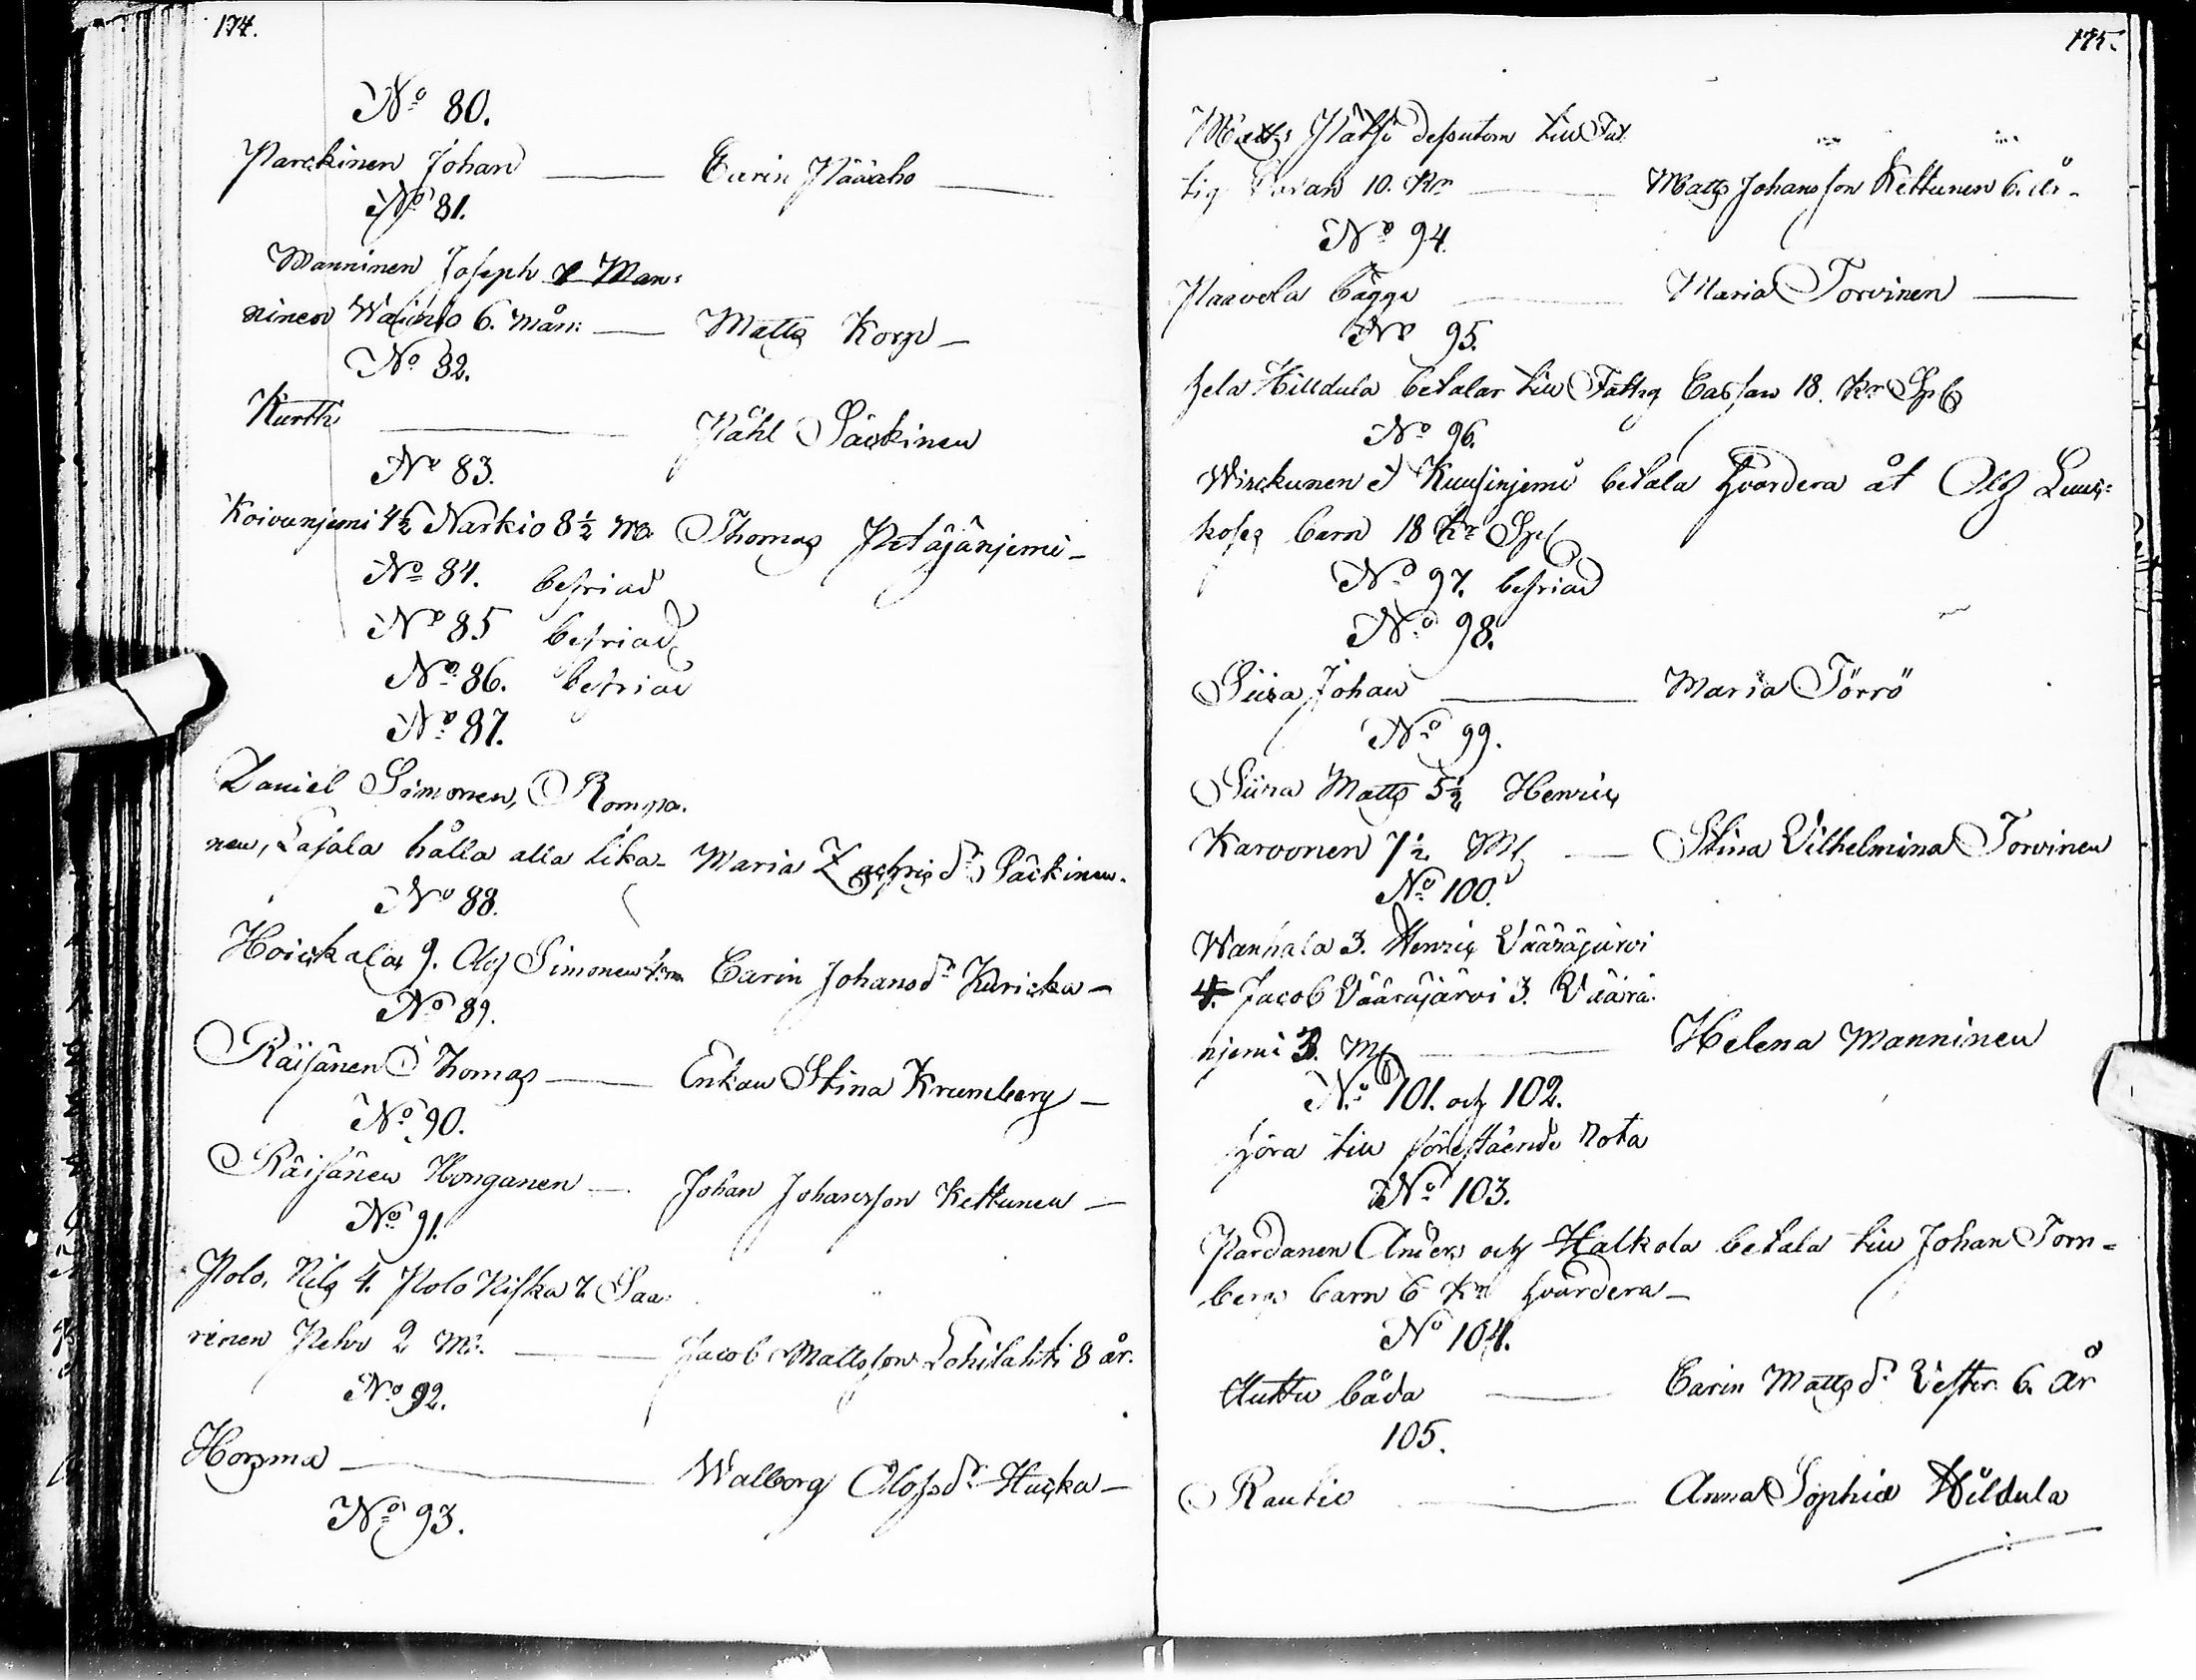 174.
No 80.
Parckinen Johan — Carin Pääaho —
No 81.
Manninen Joseph & Man:
ninen Wainio 6. mån: — Matts Korp —
No 82.
Kurtti — Påhl Säckinen
No 83.
Koivunjemi 4½ Narkio 8½ M. Thomas Petäjänjemi —
No 84. befriad
No 85 befriad
No 86. befriad
No 87.
Daniel Simonen, Rompa:
nen, Lasala hålla alla lika — Maria Zachris dr Säckinen.
No 88.
Hoickala 9. Olof Simonen Carin Johans dr Kuricka —
No 89.
Räisänen Thomas — Enkan Stina Krumberg —
No 90.
Räisänen Honganen — Johan Johansson Kettunen —
No 91.
Polo, Nils 4. Polo Niska 7. Saa:
rinen Pehr 2 M: — Jacob Mattsson Lohilahti 8 år.
No 92.
Horsma — Walborg Olofs dr Hucka —
No 93.
175.
Matts Pätsi dessutom till Fat
tig 10. Kr — Matts Johansson Kettunen 6. år —
No 94.
Paavola bägge — Maria Torvinen —
No 95.
hela Hilldula betalar till Fattig Cassan 18. Kr Sp
No 96.
Wirckunen & Kuusinjemi betala hvardera åt Olof Luus:
kos barn 18 Kr Sp
No 97. befriad
No 98.
Siira Johan — Maria Törrö
No 99.
Siira Matts 5½ Henric
Karvonen 7½ M — Stina Vilhelmina Torvinen
No 100.
Wanhala 3. Henric Vääräjärvi
4. Jacob Vääräjärvi 3. Väärä:
njemi 3. M — Helena Manninen
No 101. och 102.
höra till föreståendе rota
No 103.
Pardanen Anders och Halkola betala till Johan Torn=
bergs barn 6 Kr hvardera —
No 104.
Huttu båda — Carin Matts dr Vester. 6. år
105.
Rautio — Anna Sophia Hildula